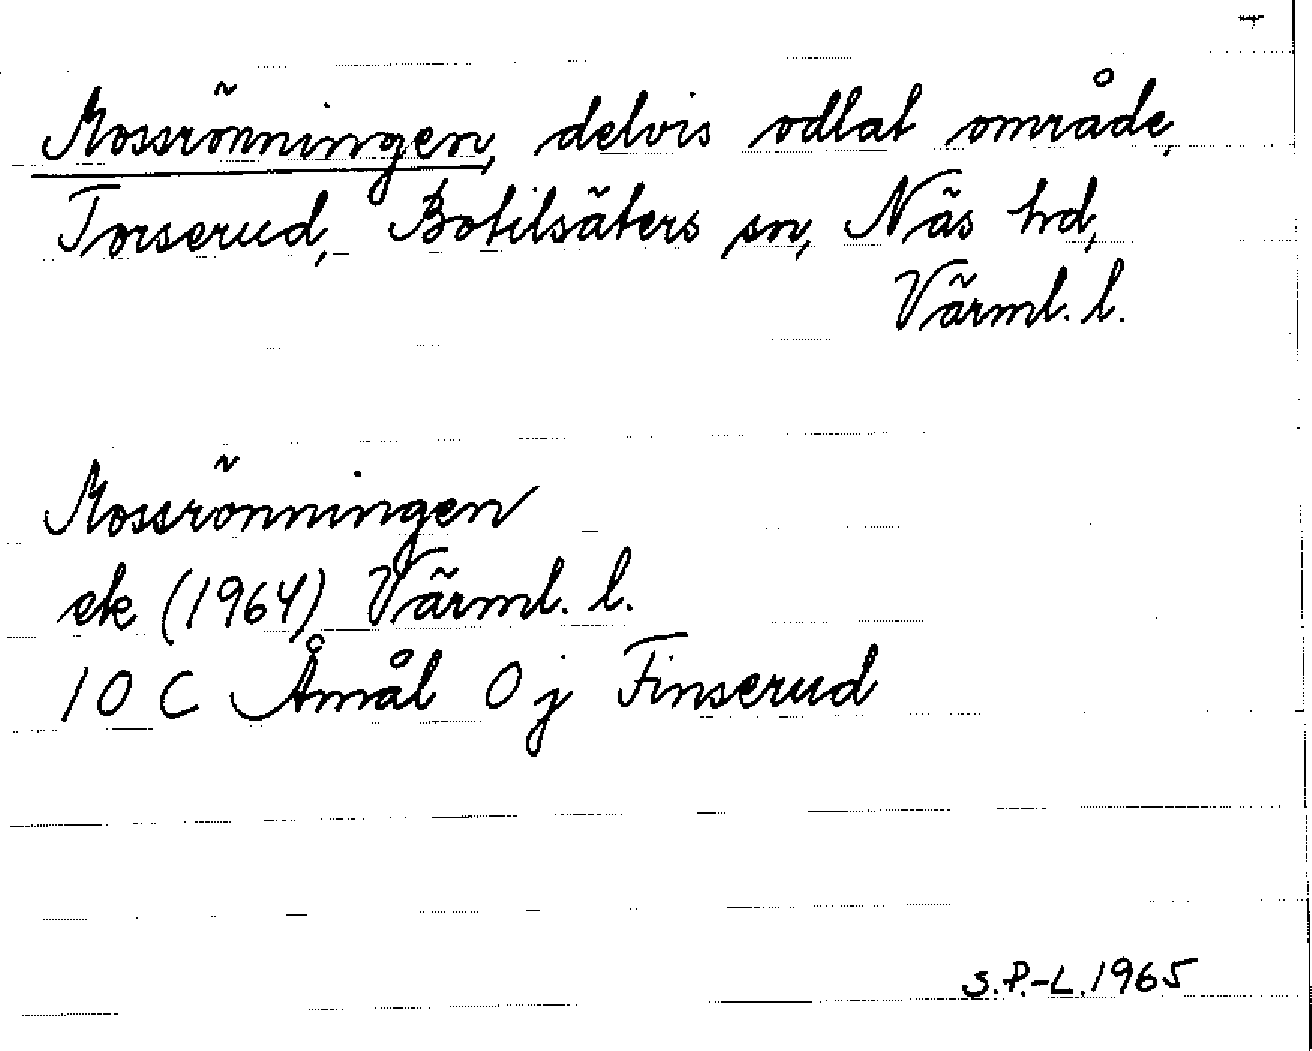 Mossrönningen, delvis odlat område,
Torserud, Botilsäters sn, Näs hd,
Värml. l.
Mossrönningen
ek (1964) Värml. l.
10 C Åmål 0 j Finserud
S.P.-L. 1965